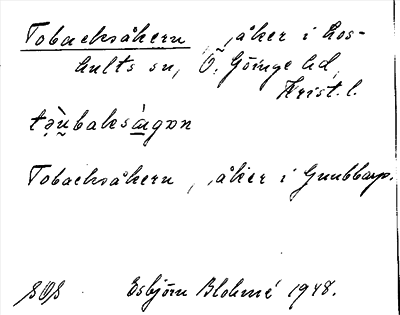 Tobacksåkern , åker i Los-
hults sn, Ö. Göinge hd,
Krist. l.
Tobacksåkern , åker i Gunbbarp.
SOS Esbjörn Blohmé 1948.